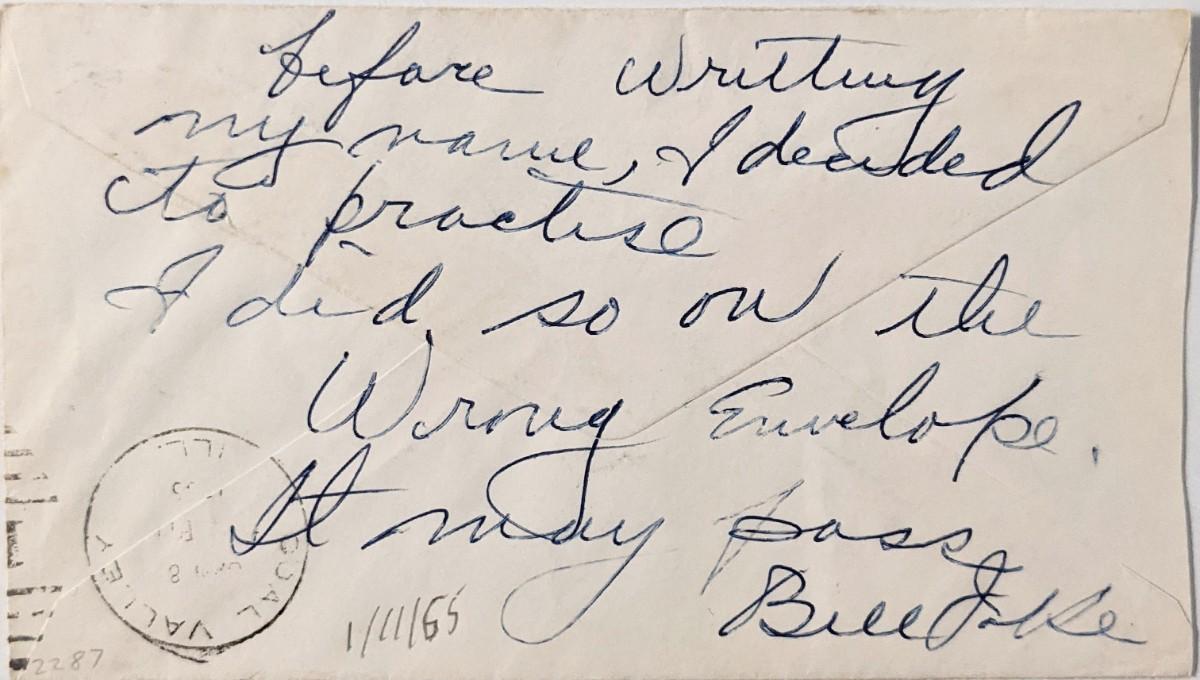 before writting
my name, I decided
to practise
I did so on the
Wrong Envelope.
It may pass
Bill
COAL VALLEY
ILL.
8
1/11/65
2287